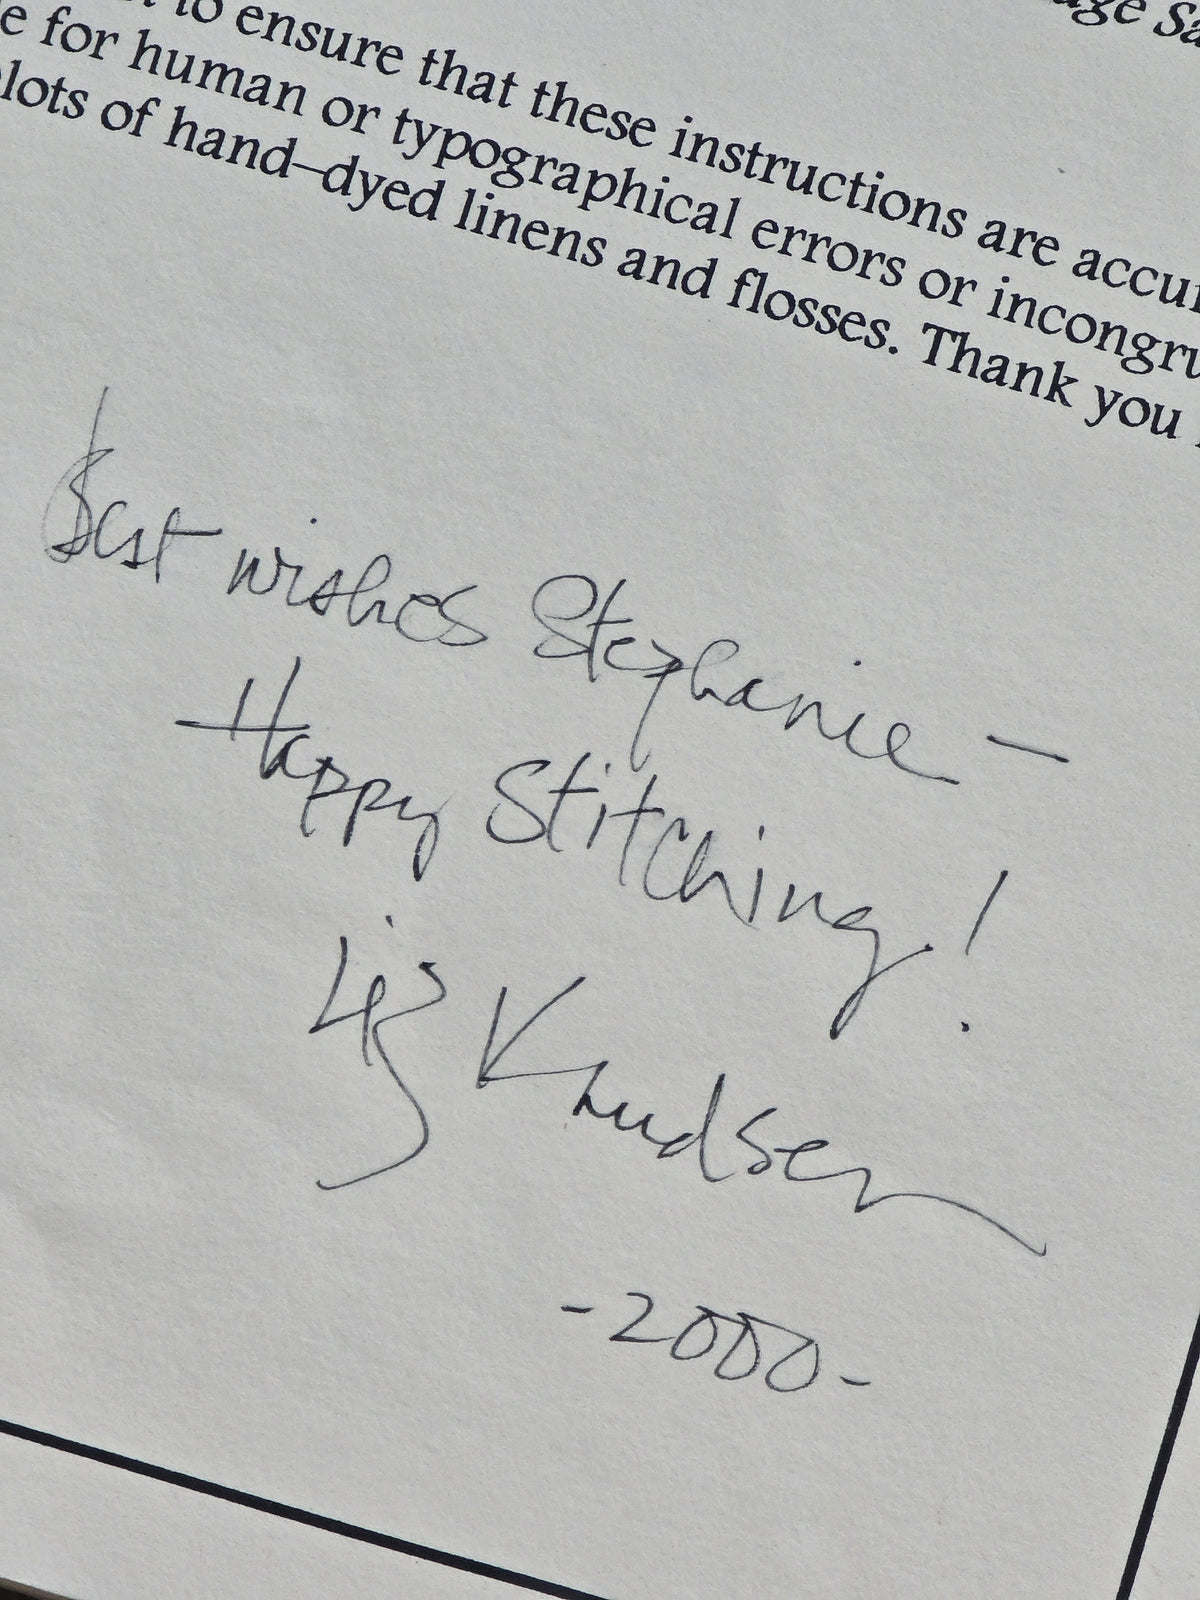 age Sa
to ensure that these instructions are accur
e for human or typographical errors or incongru
lots of hand–dyed linens and flosses. Thank you
Best wishes Stephanie –
Happy Stitching!
Liz Knudsen
- 2000 -